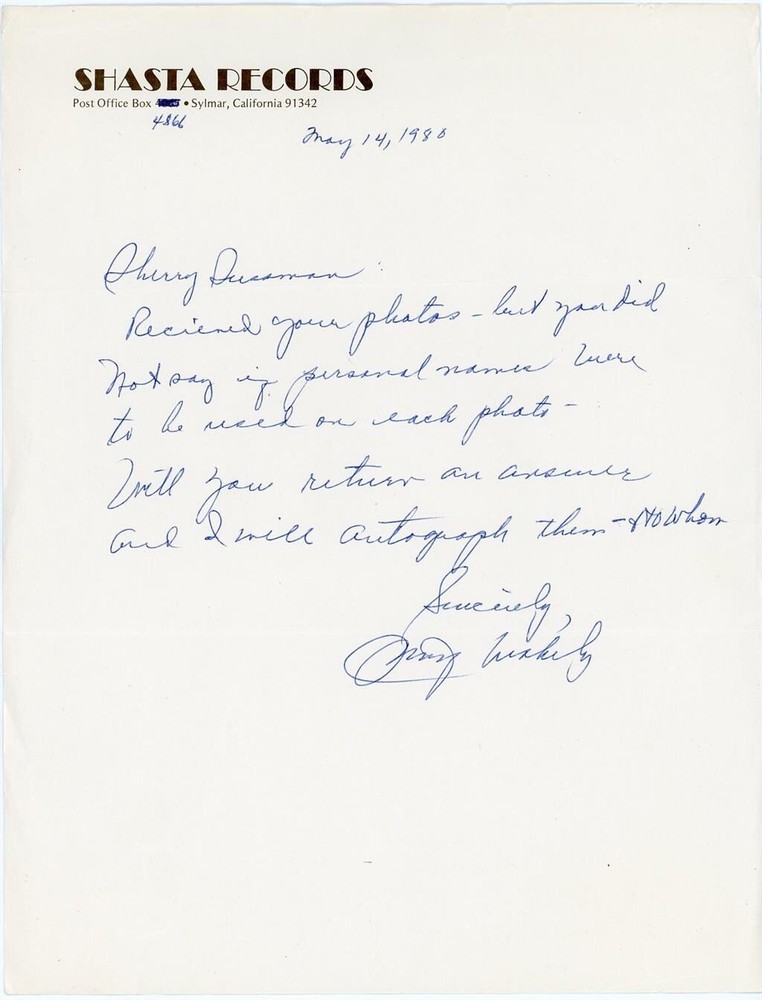 SHASTA RECORDS
Post Office Box • Sylmar, California 91342
4866
May 14, 1980
Sherry Sussman:
Recieved your photos - but you did
Not say if personal names were
to be used on each photo -
Will you return an answer
and I will autograph them - to whom
Sincerely,
Jimmy Wakely